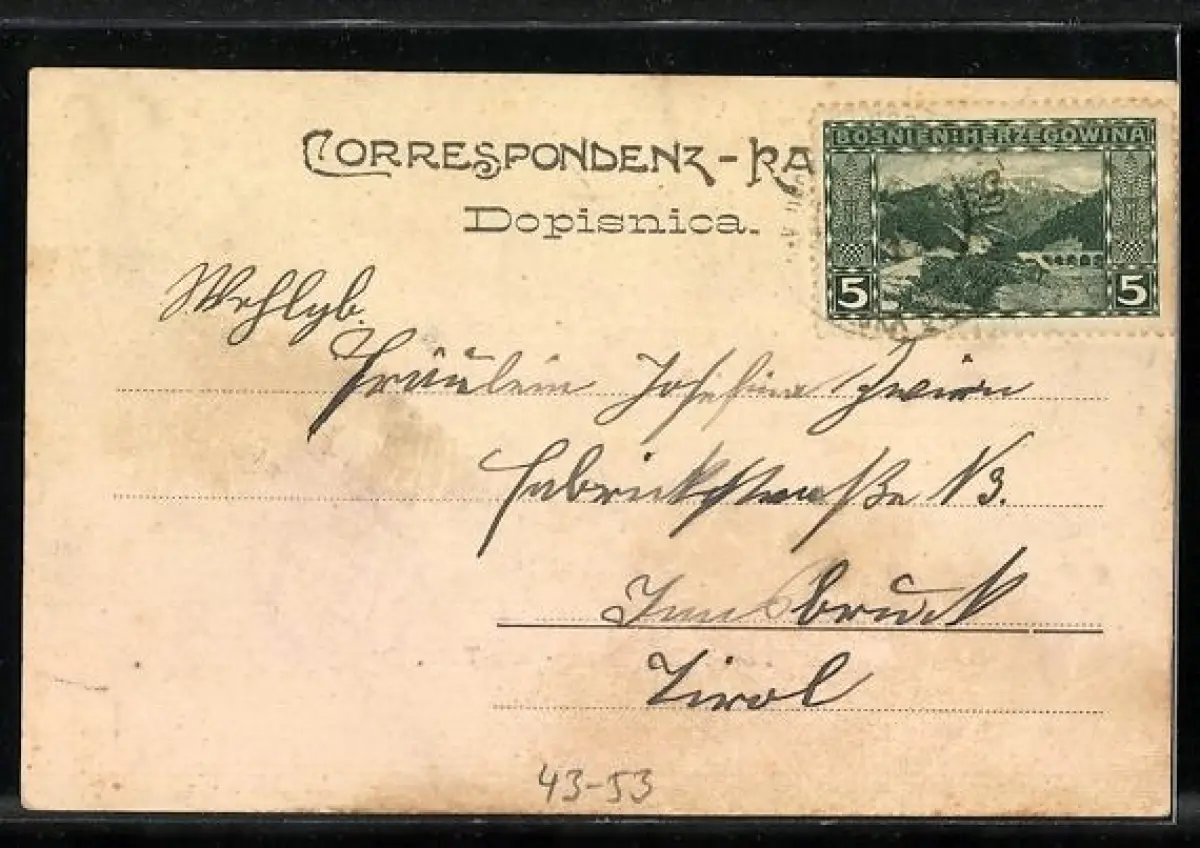 CORRESPONDENZ-KA
Dopisnica.
BOSNIEN-HERZEGOWINA
5 5
Wohlgb.
Fräulein Josefine
Fabrikstraße N 3.
Innsbruck
Tirol
43-53